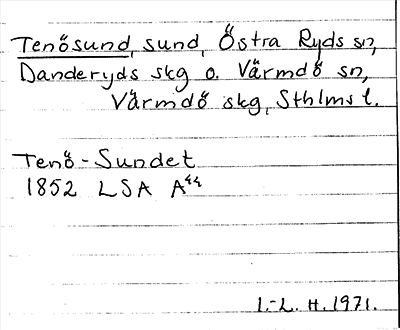 Tenösund, sund, Östra Ryds sn,
Danderyds skg o. Värmdö sn,
Värmdö skg, Sthlms l.
Tenö-Sundet
1852 LSA A⁴⁴
I.-L. H. 1971.